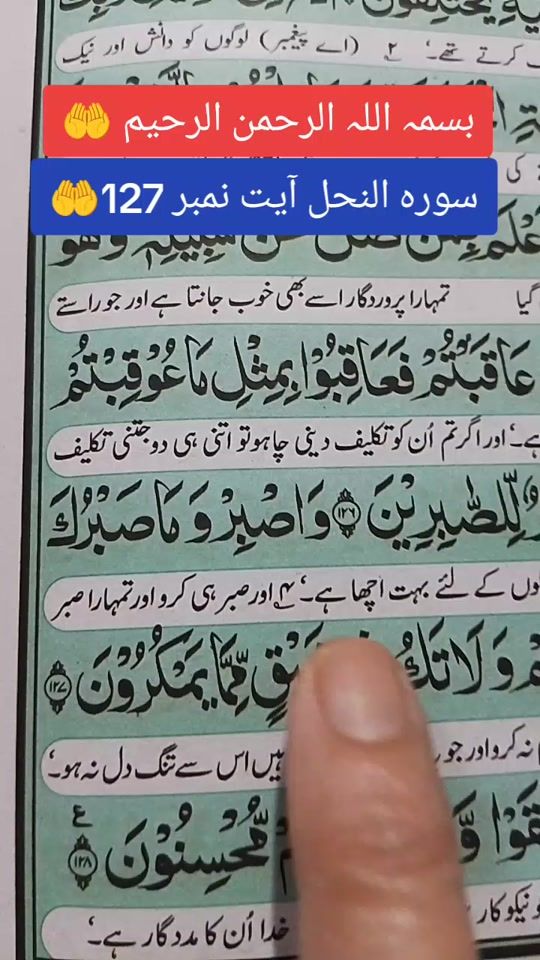 کرتے تھے۔ ؂۲ (اے پیغمبر) لوگوں کو دانش اور نیک
بسمہ اللہ الرحمن الرحیم 🤲
سورہ النحل آیت نمبر 127🤲
گیا تمہارا پروردگار اسے بھی خوب جانتا ہے اور جو راستے
عَاقَبْتُمْ فَعَاقِبُوْا بِمِثْلِ مَا عُوْقِبْتُمْ
ہے۔ اور اگر تم اُن کو تکلیف دینی چاہو تو اتنی ہی دو جتنی تکلیف
لِّلصّٰبِرِيْنَ ١٢٦ وَاصْبِرْ وَمَا صَبْرُكَ
کے لئے بہت اچھا ہے۔ ؂۴ اور صبر ہی کرو اور تمہارا صبر
وَلَا تَكُ مِّمَّا يَمْكُرُوْنَ ١٢٧
نہ کرو اور جو ہیں اس سے تنگ دل نہ ہو۔
مُّحْسِنُوْنَ ١٢٨ ع
نیکوکار خدا اُن کا مددگار ہے۔